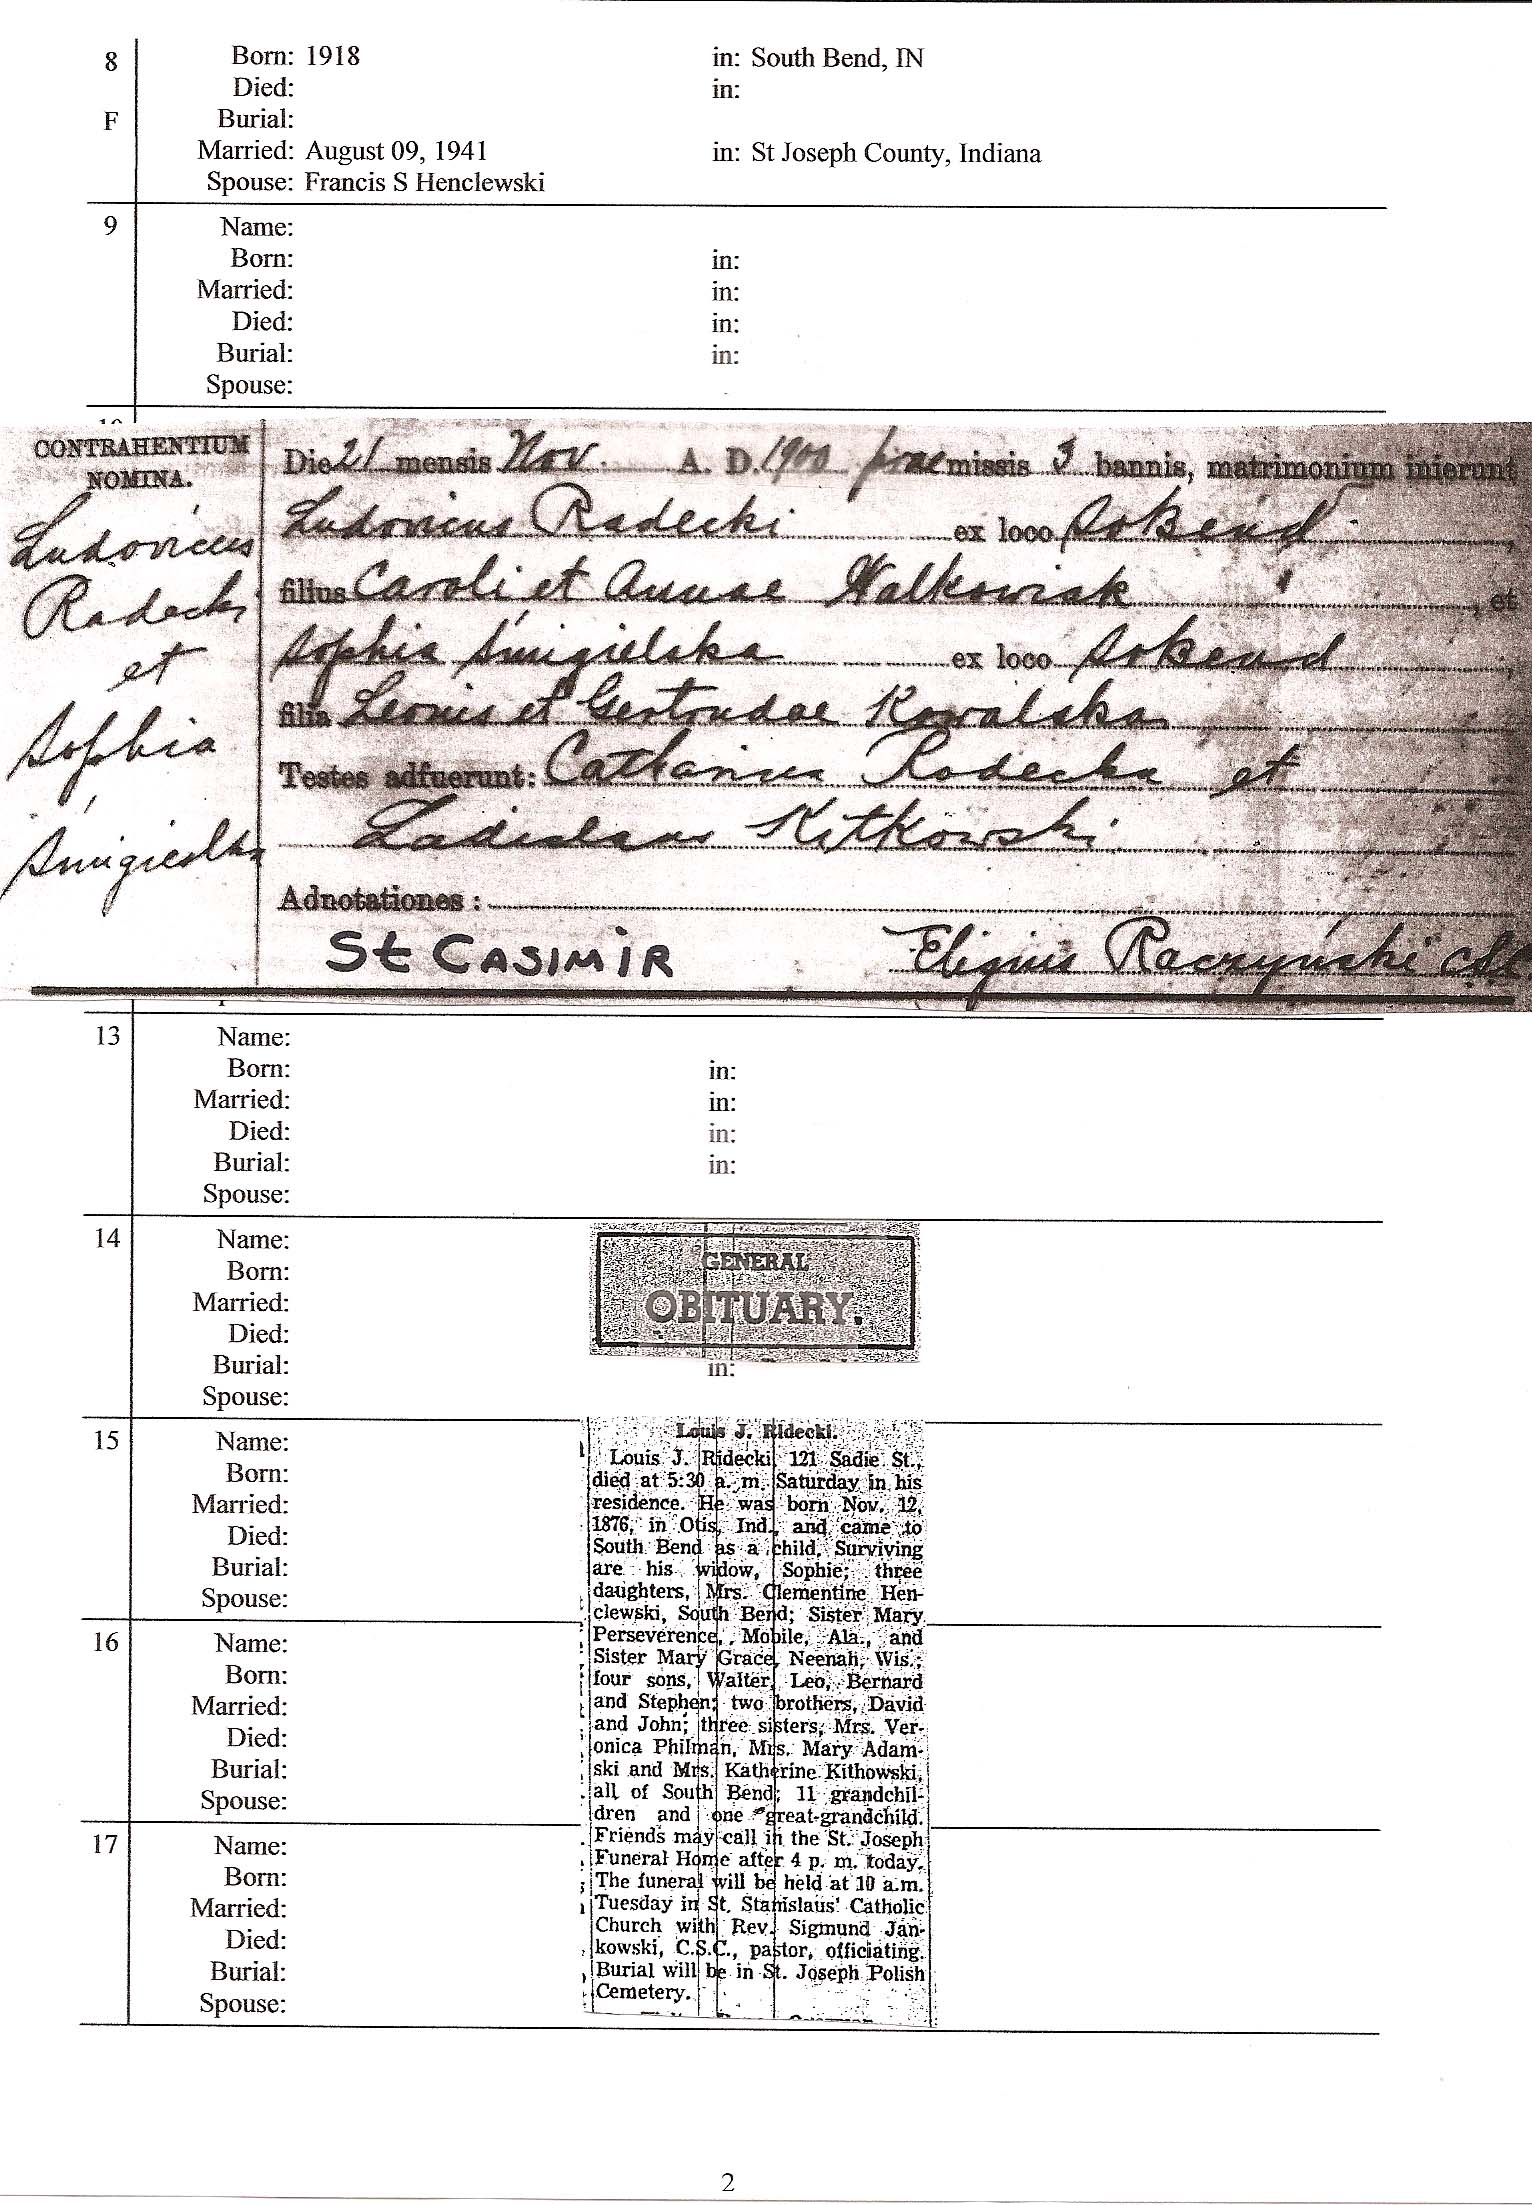 8 Born: 1918 in: South Bend, IN
Died: in:
F Burial:
Married: August 09, 1941 in: St Joseph County, Indiana
Spouse: Francis S Henclewski
9 Name:
Born: in:
Married: in:
Died: in:
Burial: in:
Spouse:
CONTRAHENTIUM
NOMINA.
Ludovicus
Radecki
et
Sophia
Śmigielska
Die 21 mensis Nov. A. D. 1900 praemissis 3 bannis, matrimonium inierunt
Ludovicus Radecki ex loco So Bend,
filius Caroli et Annae Walkowiak " , et
Sophia Śmigielska ex loco So Bend,
filia Leonis et Gertrudae Kowalska
Testes adfuerunt: Catharina Radecka et
Ladislaus Kitkowski
Adnotationes:
St CASIMIR Eligius Raczyński CSC
13 Name:
Born: in:
Married: in:
Died: in:
Burial: in:
Spouse:
14 Name:
Born:
Married:
Died:
Burial: in:
Spouse:
GENERAL
OBITUARY.
15 Name:
Born:
Married:
Died:
Burial:
Spouse:
16 Name:
Born:
Married:
Died:
Burial:
Spouse:
17 Name:
Born:
Married:
Died:
Burial:
Spouse:
Louis J. Ridecki.
Louis J. Ridecki 121 Sadie St.,
died at 5:30 a. m. Saturday in his
residence. He was born Nov. 12,
1876, in Otis, Ind., and came to
South Bend as a child. Surviving
are his widow, Sophie; three
daughters, Mrs. Clementine Hen-
clewski, South Bend; Sister Mary
Perseverence, Mobile, Ala., and
Sister Mary Grace, Neenah, Wis.;
four sons, Walter, Leo, Bernard
and Stephen; two brothers, David
and John; three sisters, Mrs. Ver-
onica Philman, Mrs. Mary Adam-
ski and Mrs. Katherine Kithowski,
all of South Bend; 11 grandchil-
dren and one great-grandchild.
Friends may call in the St. Joseph
Funeral Home after 4 p. m. today.
The funeral will be held at 10 a.m.
Tuesday in St. Stanislaus' Catholic
Church with Rev. Sigmund Jan-
kowski, C.S.C., pastor, officiating.
Burial will be in St. Joseph Polish
Cemetery.
2